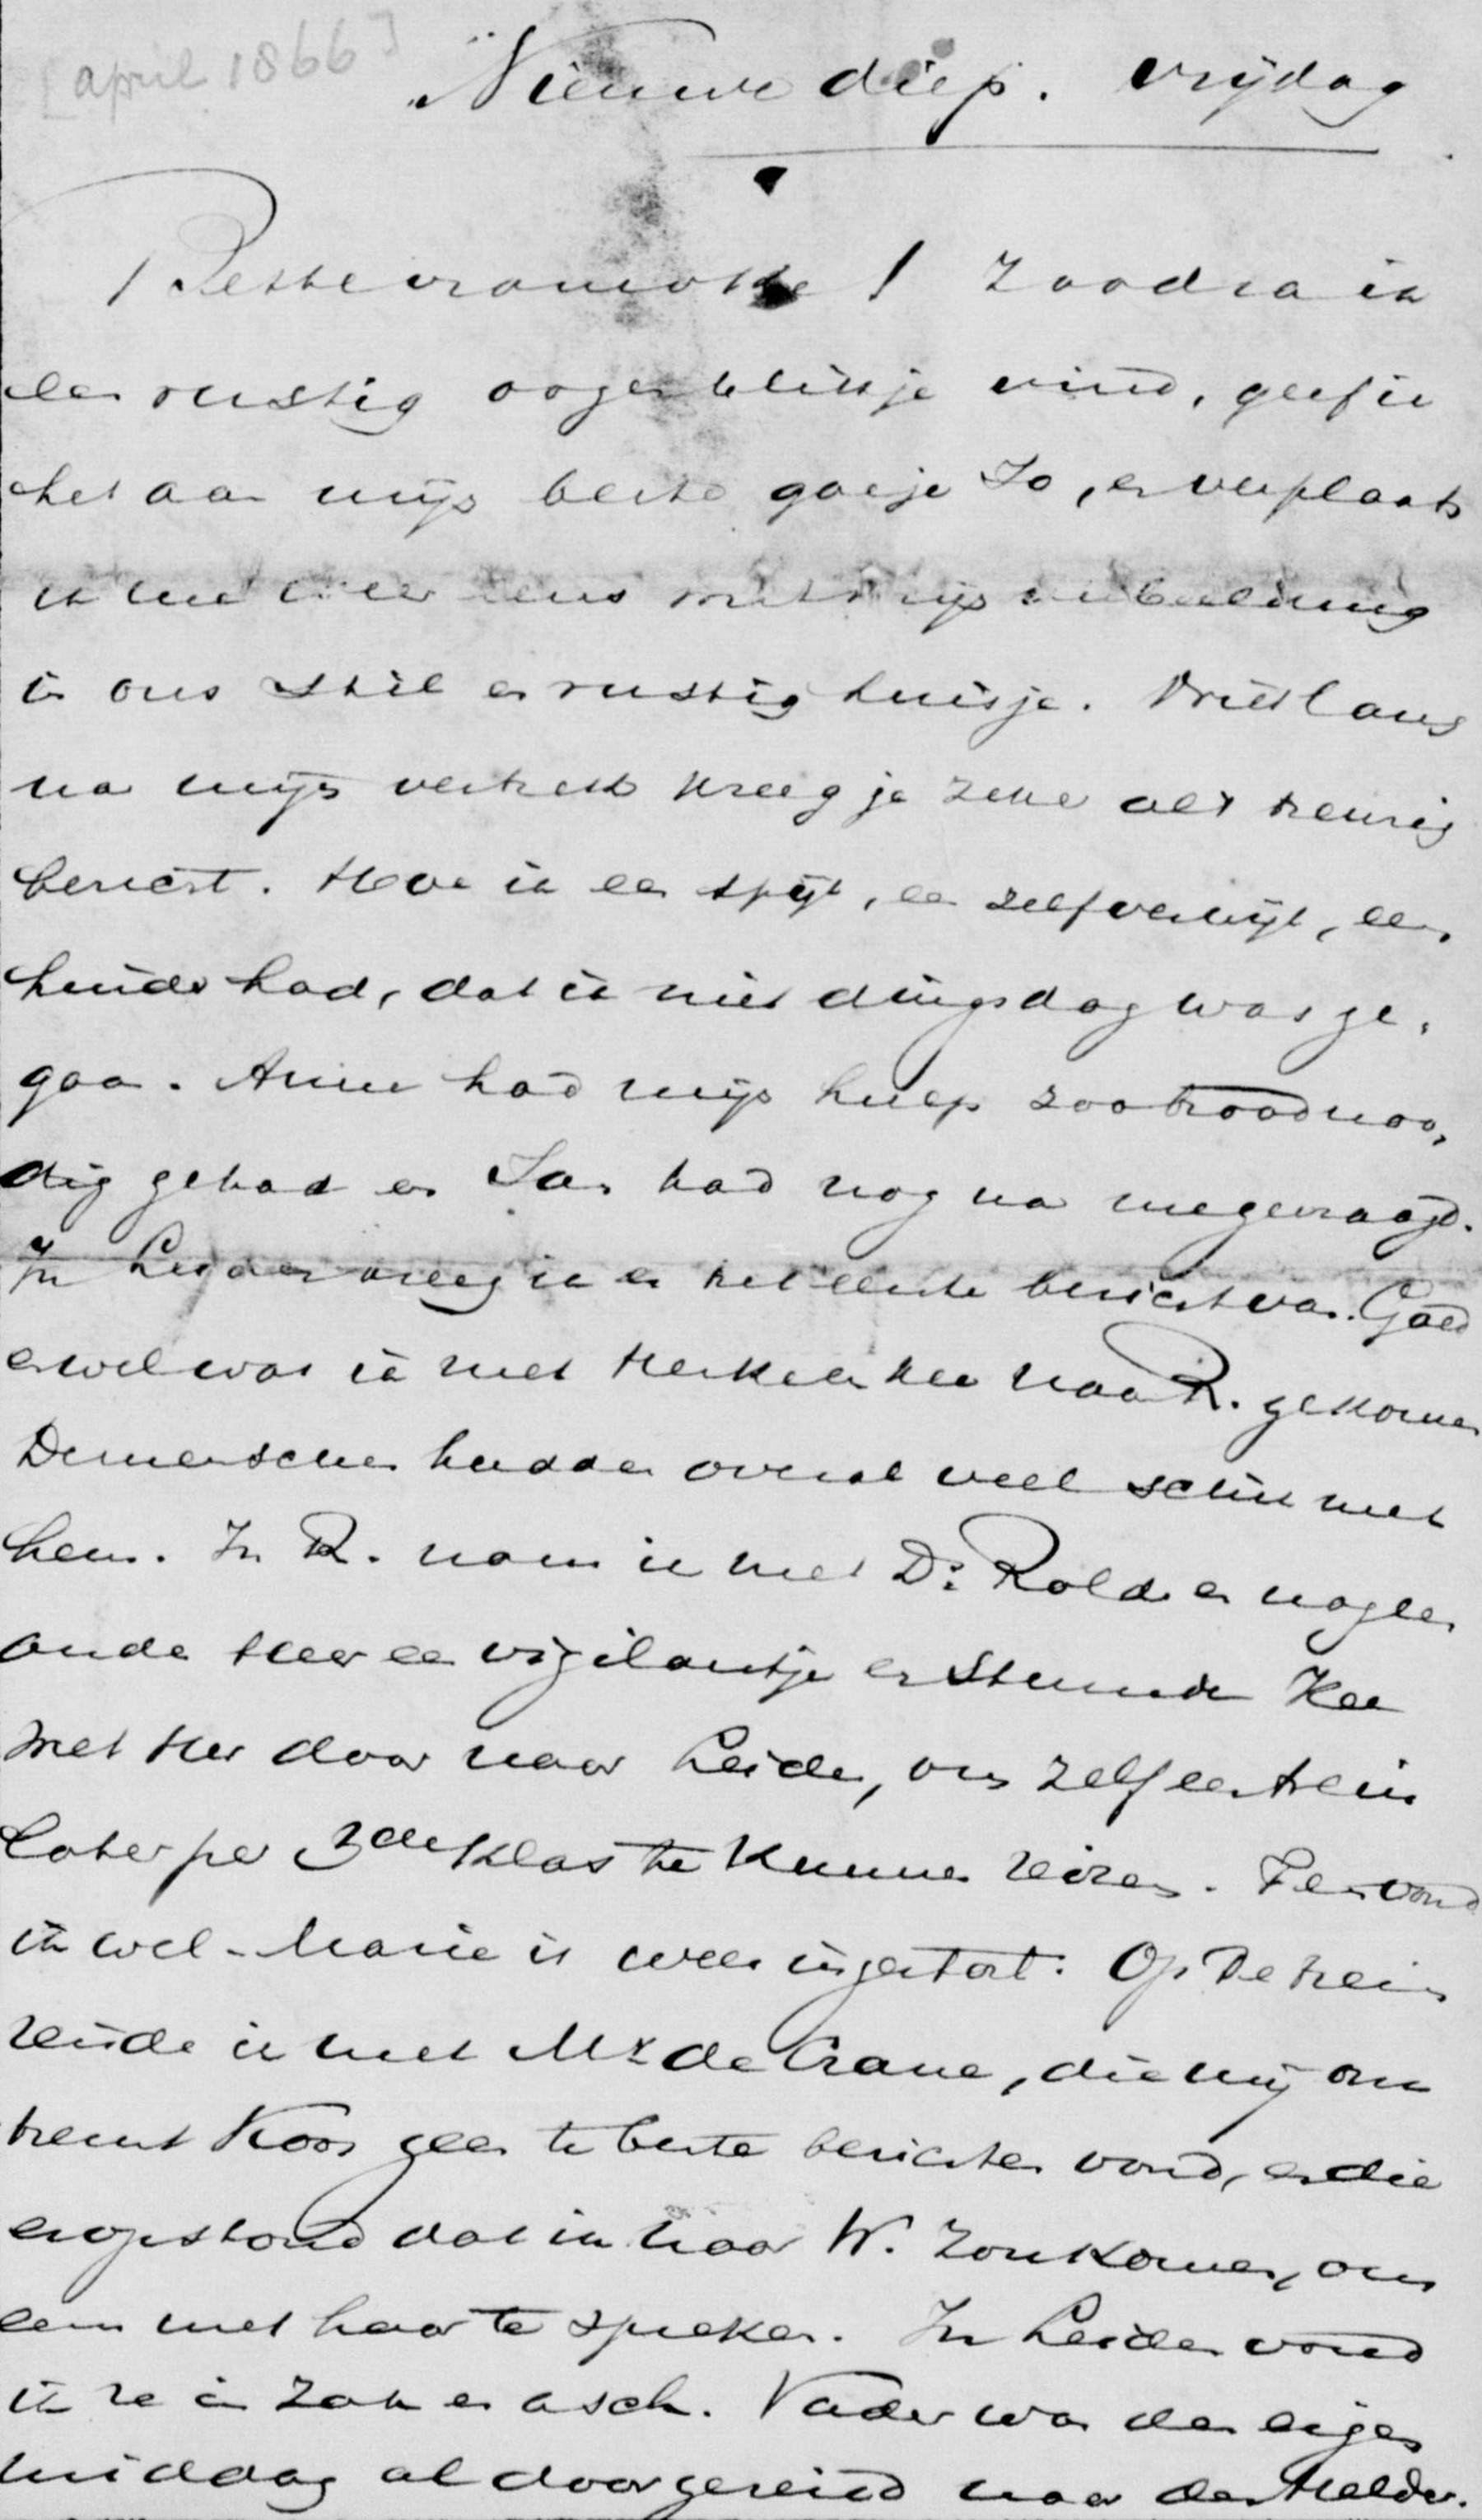 [april 1866]
Nieuwe diep. vrijdag
Beste vrouwtke! Zoodra ik
een rustig oogenblikje vind, geef ik
het aan mijn beste goeje Jo, en verplaats
ik me weer eens met mijn verbeelding
in ons stil en rustig huisje. Niet lang
na mijn vertrek kreeg je zeker al 't treurig
berigt. Hoe ik een spijt, een zelfverwijt, een
hinder had, dat ik niet dingsdag was ge-
gaan. Anne had mijn hulp zoo broodnoo-
dig gehad en Jan had nog na me gevraagd.
In Leiden kreeg ik er het eerste berigt van. Goed
en wel was ik met Kee naar R. gekomen
De menschen hadden overal veel schik met
hem. In R. nam ik met Ds Rolden en nog een
oude Heer een vigilantje en stuurde Kee
met Her door naar Leiden, om zelf een trein
later per 3de klas te kunnen reizen. Fer vond
ik wel - Marie is weer ingestort. Op de trein
reisde ik met Mr de Crane, die mij om-
trent Koos geen te beste berichten vond, en die
erop stond dat ik naar W. zou komen, om
eens met haar te spreken. In Leiden vond
ik ze in zak en asch. Vader was den eigen
middag al doorgereisd naar den Helder.